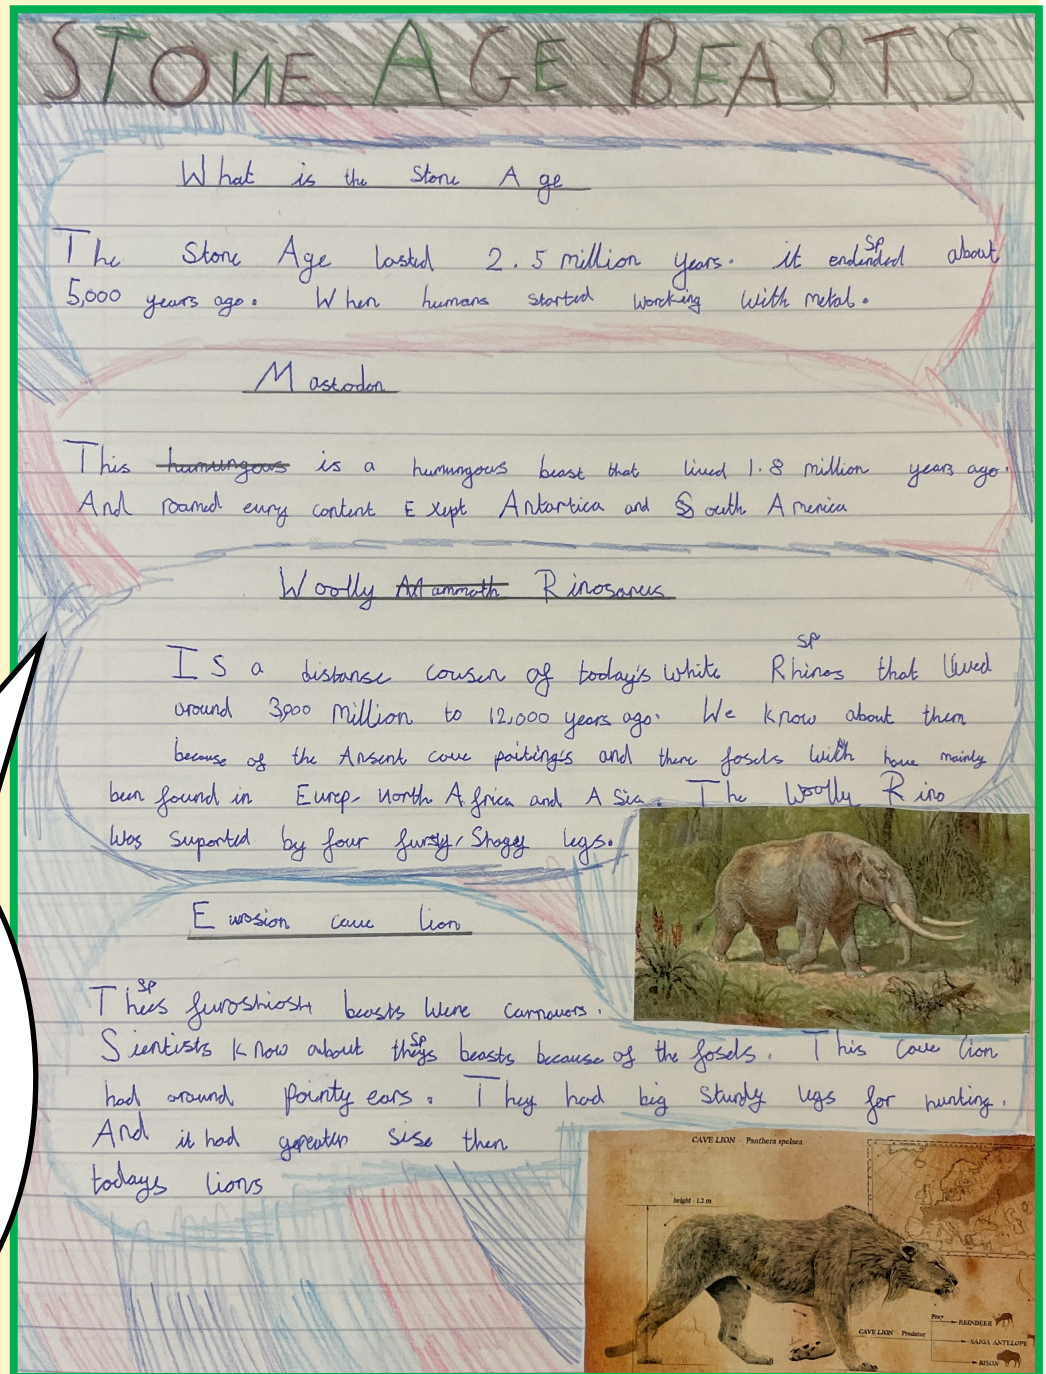 STONE AGE BEASTS
What is the Stone Age
The Stone Age lasted 2.5 million years. it endinded about
SP
5,000 years ago. When humans started worcking with metal.
Mastodon
This humungous is a humungous beast that lived 1.8 million years ago.
And roamed eury content Exept Antartica and South America
Woolly Mammoth Rinosareus
SP
Is a distanse cousen of today's white Rhinos that lived
around 3,000 Million to 12,000 years ago. We know about them
because of the Ansent cave poitings and there fosels with have mainly
been found in Europ- north Africa and Asia. The Woolly Rino
was suported by four fursty, Shogey legs.
Eurosion cave lion
SP
Thees furoshiosh beasts were carnavors.
SP
Sientists know about theys beasts because of the fosels. This cave lion
had around pointy ears. They had big sturdy legs for hunting.
And it had greater sise then
todays lions
CAVE LION - Panthera spelaea
height - 1.2 m
CAVE LION - Predator
Prey
REINDEER
SAIGA ANTELOPE
BISON